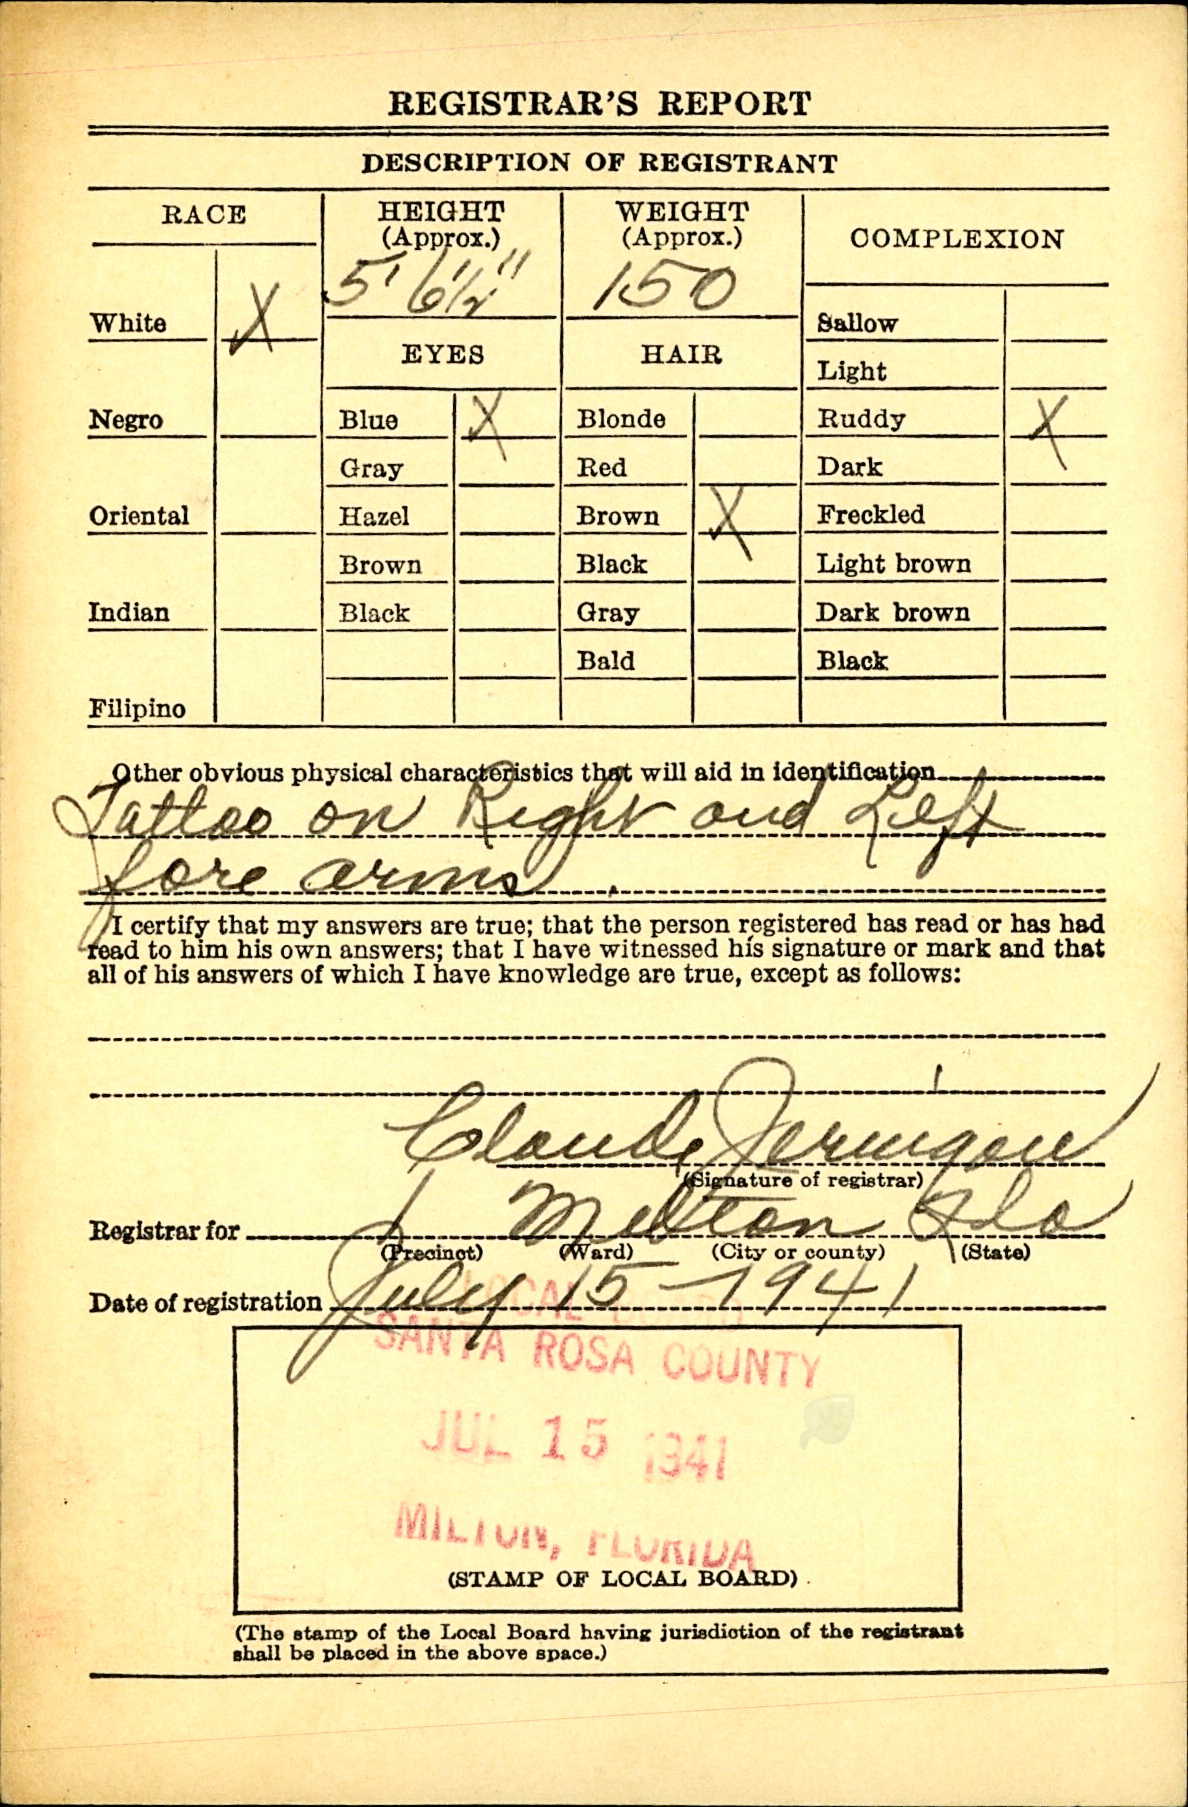 REGISTRAR'S REPORT
DESCRIPTION OF REGISTRANT
RACE
HEIGHT
(Approx.)
5' 6½"
WEIGHT
(Approx.)
150
COMPLEXION
White X
EYES
HAIR
Sallow
Light
Negro
Blue X
Blonde
Ruddy X
Gray
Red
Dark
Oriental
Hazel
Brown X
Freckled
Brown
Black
Light brown
Indian
Black
Gray
Dark brown
Bald
Black
Filipino
Other obvious physical characteristics that will aid in identification
Tattoo on Right and Left
fore arms.
I certify that my answers are true; that the person registered has read or has had
read to him his own answers; that I have witnessed his signature or mark and that
all of his answers of which I have knowledge are true, except as follows:
Claude Jernigan
(Signature of registrar)
Registrar for 1 Milton Fla
(Precinct) (Ward) (City or county) (State)
Date of registration July 15-1941
LOCAL BOARD
SANTA ROSA COUNTY
JUL 15 1941
MILTON, FLORIDA
(STAMP OF LOCAL BOARD)
(The stamp of the Local Board having jurisdiction of the registrant
shall be placed in the above space.)